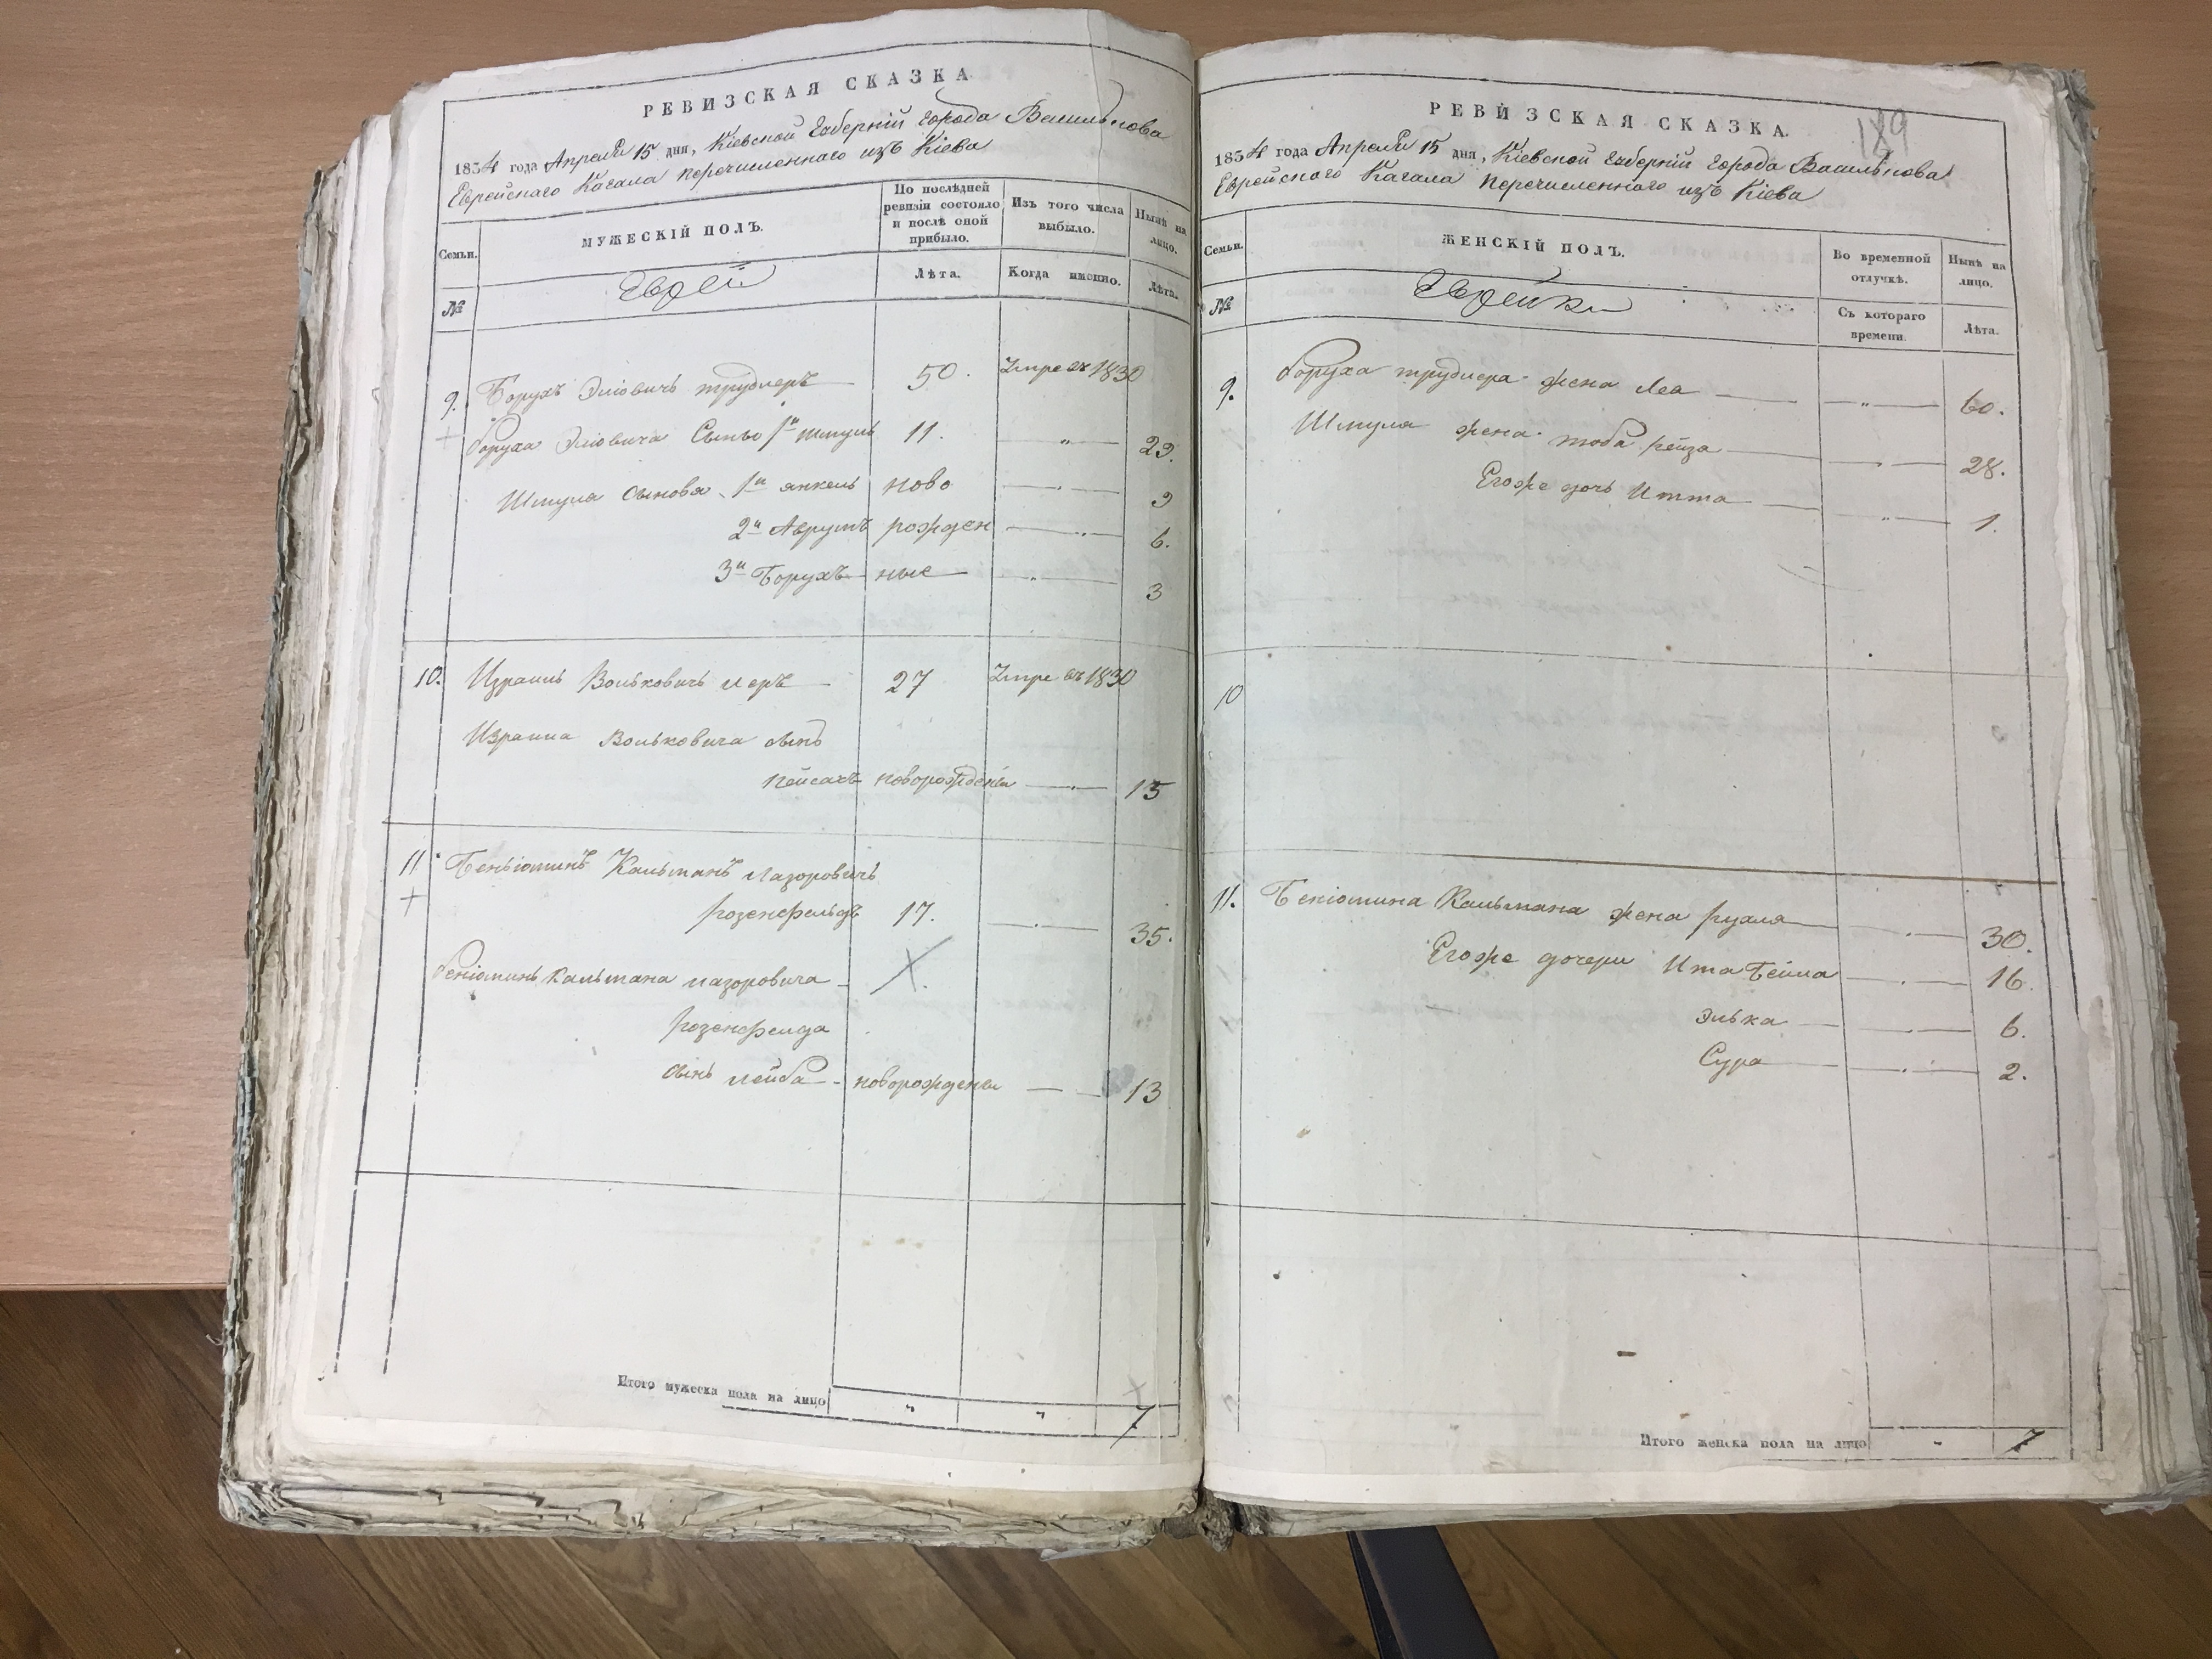 РЕВИЗСКАЯ СКАЗКА
1834 года Апреля 15 дня, Кіевской Губерніи Города Василькова
Еврейскаго Кагала перечисленнаго изъ Кіева
Семьи.
МУЖЕСКІЙ ПОЛЪ.
По послѣдней ревизіи состояло и послѣ оной прибыло.
Изъ того числа выбыло.
Нынѣ на лицо.
№
Евреи
Лѣта.
Когда именно.
Лѣта.
9. Борухъ Эліовичъ 50. Умре въ 1830
Боруха Эліовича Сынъ 1й Шмуль 11. " 29.
Шмуля сыновя 1й янкель ново " 9
2й Аврумъ рожден " 6.
3й Борухъ ные " 3
10. Израиль Вольковичъ 27 Умре въ 1830
Израиля Вольковича сынъ
Пейсахъ новорожденый " 15
11 Беньюминъ Кальманъ Лазоровичъ
розенфельдъ 17. " 35.
Беніоминъ Кальмана лазоровича
розенфелда
сынъ лейба новорожденый 13
Итого мужеска пола на лицо " " 7
189
РЕВИЗСКАЯ СКАЗКА.
1834 года Апреля 15 дня, Кіевской Губерніи Города Василькова
Еврейскаго Кагала перечисленнаго изъ Кіева
Семьи.
ЖЕНСКІЙ ПОЛЪ.
Во временной отлучкѣ.
Нынѣ на лицо.
№
Еврейки
Съ котораго времени.
Лѣта.
9. Боруха жена Леа " 60.
Шмуля жена тоба рейза " 28.
Егоже дочь Итта " 1.
10
11. Беніомина Кальмана жена рухля " 30.
Егоже дочери Ита Бейла " 16.
Элька " 6.
Сура " 2.
Итого женска пола на лицо " 7